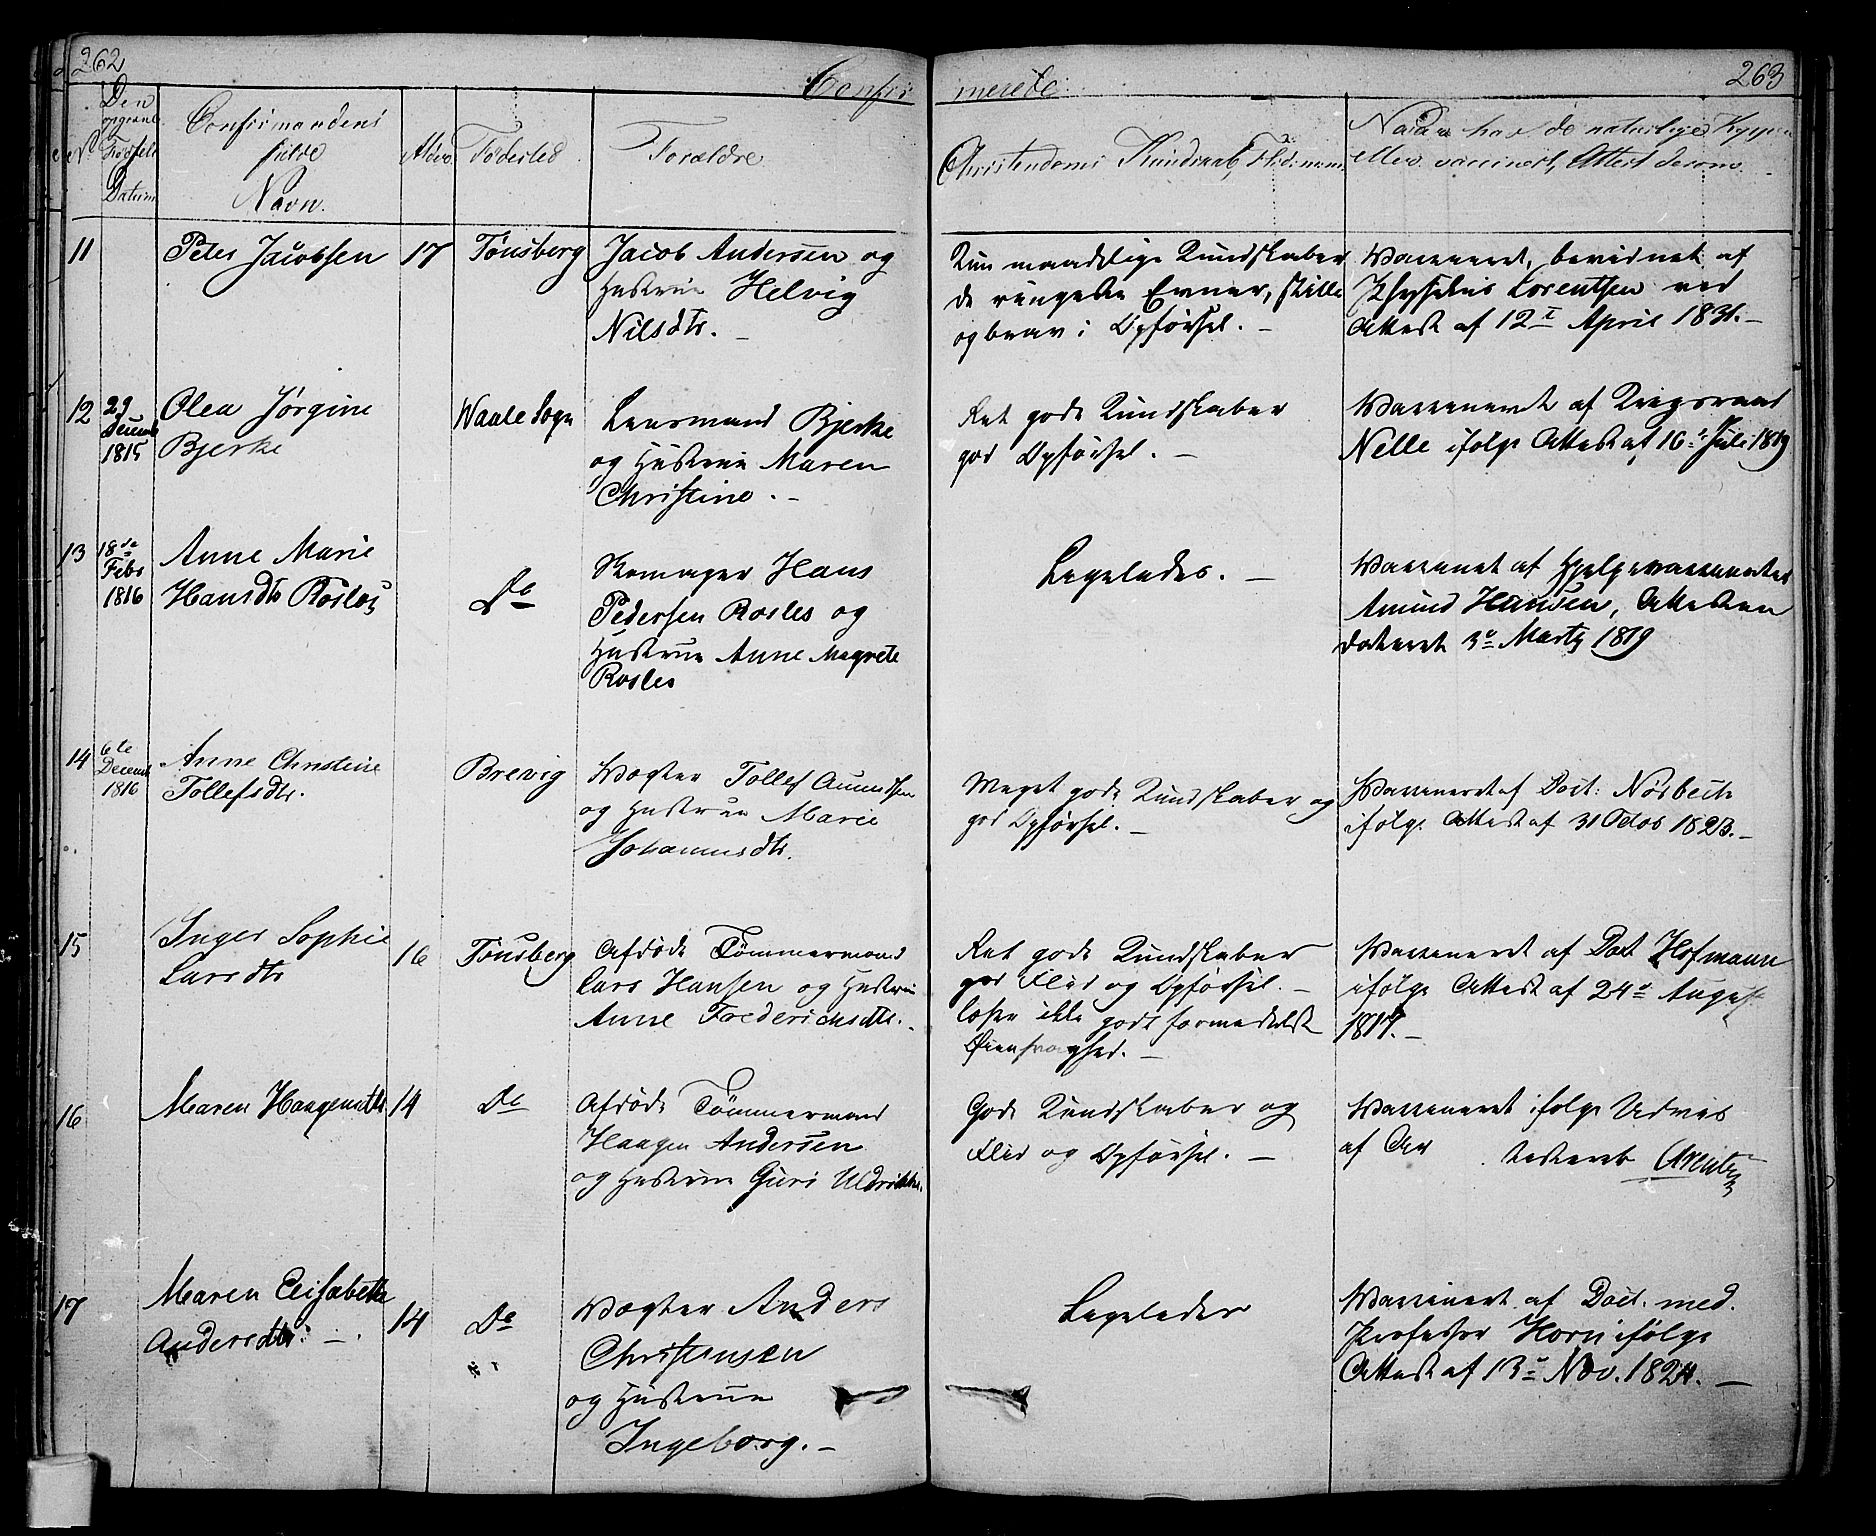 262
Confir
merede
263
No
Den
opgivne
Fødsels
Datum
Confirmandens
fulde
Navn.
Alder
Fødested
Forældre
Christendoms Kundskab, Flid
Naar har de naturlige Kopper
eller vaccineret, Attest derom.
11
Peter Jacobsen
17
Tønsberg
Jacob Andersen og
Hustrue Helvig
Nilsdtr. –
Kun maadelige Kundskaber
de ringeste Evner, stille
og brav i Opførsel. –
Vaccineret, bevidnet af
Physikus Lorentsen ved
Attest af 12te April 1831. –
12
29
Decemb
1815
Olea Jørgine
Bjerke
Waale Sogn
Lensmand Bjerke
og Hustrue Maren
Christine. –
Ret gode Kundskaber
god Opførsel. –
Vaccineret af Krigsraad
Nelle ifølge Attest af 16de Juli 1819
13
18de
Febr
1816
Anne Marie
Hansdtr Rosles
Do
Skomager Hans
Pedersen Rosles og
Hustrue Anne Magrete
Rosles
Ligeledes. –
Vaccineret af Hjelpevaccinateur
Amund Hansen, Attesten
dateret 3de Marty 1819
14
6te
Decemb
1816
Anne Christine
Tollefsdtr.
Brevig
Vægter Tollef Amundsen
og Hustrue Marie
Johannisdtr.
Meget gode Kundskaber og
god Opførsel. –
Vaccineret af Doct: Nørbech
ifølge Attest af 31 Octob 1823. –
15
Inger Sophie
Larsdtr
16
Tønsberg
Afdøde Tømmermand
Lars Hansen og Hustrue
Anne Frederichsdtr. –
Ret gode Kundskaber
god Flid og Opførsel. –
læser ikke godt formedelst
Øiensvaghed. –
Vaccineret af Doct Hofmann
ifølge Attest af 24de August
1817. –
16
Maren Haagensdtr
14
Do
Afdøde Tømmermand
Haagen Andersen
og Hustrue Guri Uldrikke.
Gode Kundskaber og
Flid og Opførsel. –
Vaccineret ifølge Udviis
af Arr testereret Arentz
17
Maren Elisabeth
Andersdtr. – .
14
Do
Vægter Anders
Christensen
og Hustrue
Ingeborg. –
Ligeledes
Vaccineret af Doct. med.
Professor Horn ifølge
Attest af 13de Nov. 1824. –